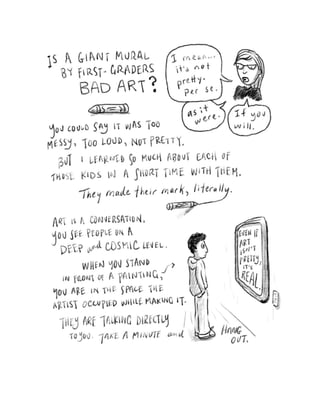 IS A GIANT MURAL
BY FIRST-GRADERS
BAD ART?
I mean...
it's not
pretty.
Per se.
as it
were.
If you
will.
YOU COULD SAY IT WAS TOO
MESSY, TOO LOUD, NOT PRETTY.
BUT I LEARNED SO MUCH ABOUT EACH OF
THOSE KIDS IN A SHORT TIME WITH THEM.
They made their mark, literally.
ART IS A CONVERSATION.
YOU SEE PEOPLE ON A
DEEP and COSMIC LEVEL.
WHEN YOU STAND
IN FRONT OF A PAINTING,
YOU ARE IN THE SPACE THE
ARTIST OCCUPIED WHILE MAKING IT.
THEY ARE TALKING DIRECTLY
TO YOU. TAKE A MINUTE and
HANG
OUT.
EVEN IF
ART
ISN'T
PRETTY,
IT'S
REAL.